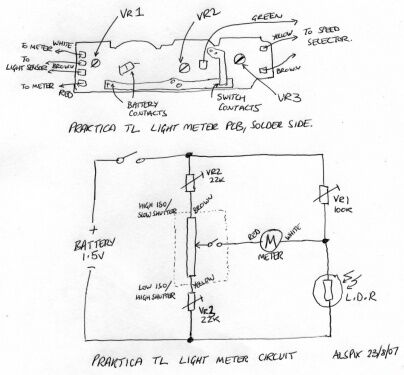 VR1
VR2
GREEN
TO METER
WHITE
TO LIGHT SENSOR
BROWN
TO METER
RED
YELLOW
TO SPEED
SELECTOR.
BROWN
BATTERY
CONTACTS
SWITCH
CONTACTS
VR3
PRAKTICA TL LIGHT METER PCB, SOLDER SIDE.
VR2
22K
BROWN
HIGH ISO/
SLOW SHUTTER
VR1
100K
+
BATTERY
1.5V
-
RED
M
WHITE
METER
LOW ISO/
HIGH SHUTTER
YELLOW
22K
L.D.R
PRAKTICA TL LIGHT METER CIRCUIT
ALSPIX 23/8/07